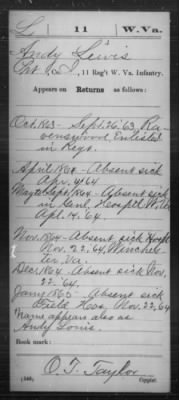 L 11 W. Va.
Andy Lewis
Pvt., Co. I., 11 Reg't W. Va. Infantry.
Appears on Returns as follows:
Oct. 1863 - Sept. 26 '63, Ra-
venswood Enlisted
in Regt.
April 1864 - Absent sick
Apr. 4/64.
May to Sept. 1864 - Absent sick
in Genl. Hospt. W. Va.
Apl. 14 '64.
Nov. 1864 - Absent sick Hosp.
Nov. 22, 64, Winches-
ter, Va.
Decr 1864 Absent sick Nov.
22, '64.
Jany 1865 - Absent sick
Field Hos. Nov. 22, 64
Name appears also as
Andy Louis.
Book mark:
O. T. Taylor
(546) Copyist.